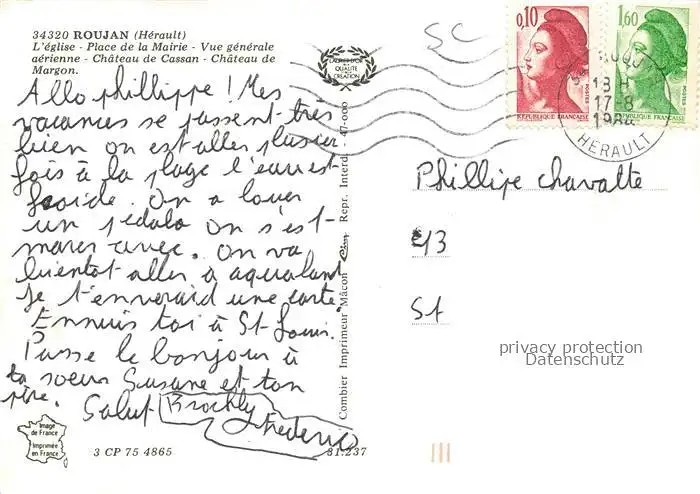 34320 ROUJAN (Hérault)
L'église - Place de la Mairie - Vue générale
aérienne - Château de Cassan - Château de
Margon.
LABEL D'OR
DE
QUALITÉ
CRÉATION
Allo phillippe ! Mes
vacances se passent très
bien on est aller plusieur
fois à la plage l'eau est
froide. On a louer
un pedalo on s'est
marer avec. On va
bientot aller à aqualand
Je t'enveraid une carte
Ennuis toi à St-Louis.
Passe le bonjour à
ta soeur Susane et ton
père. Salut Brochly
Frederic
Image
de France
Imprimée
en France
3 CP 75 4865
81.237
Combier Imprimeur Mâcon Cim Repr. Interd. - 47-000
SC
0,10
REPUBLIQUE FRANÇAISE
POSTES
1,60
REPUBLIQUE FRANÇAISE
POSTES
18 H
17-8
HERAULT
Phillipe chavatte
43
St
privacy protection
Datenschutz